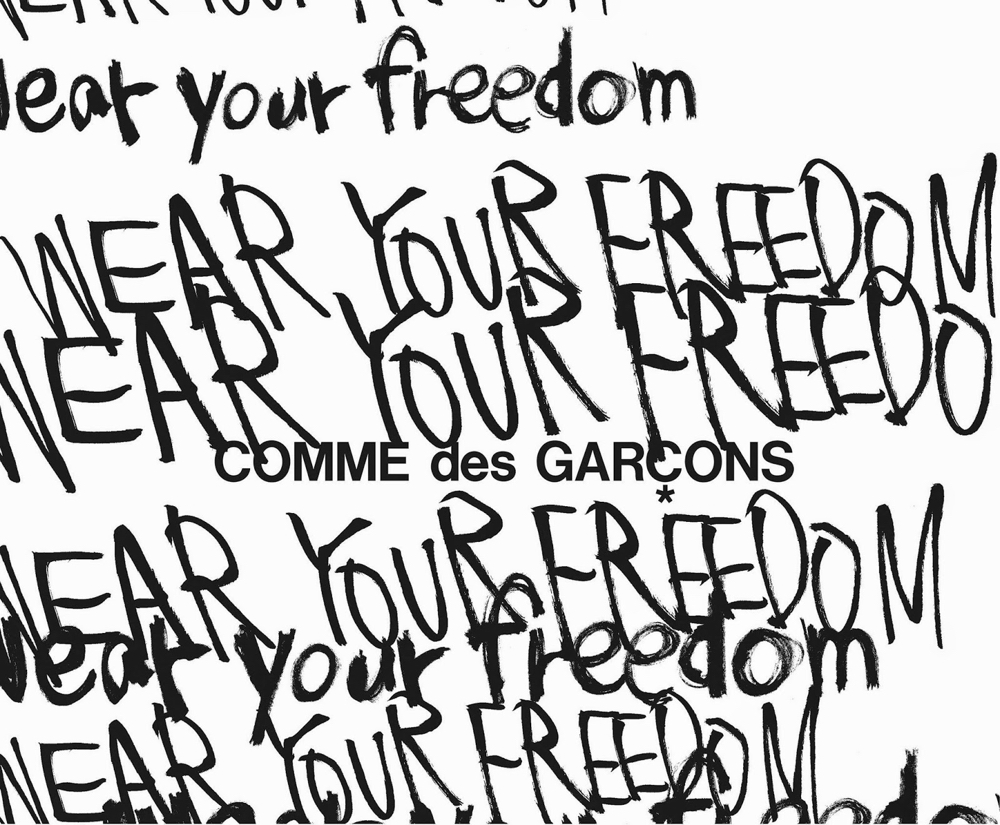 wear your freedom
WEAR YOUR FREEDOM
WEAR YOUR FREEDO
COMME des GARÇONS
*
WEAR YOUR FREEDOM
wear your freedom
WEAR YOUR FREEDOM